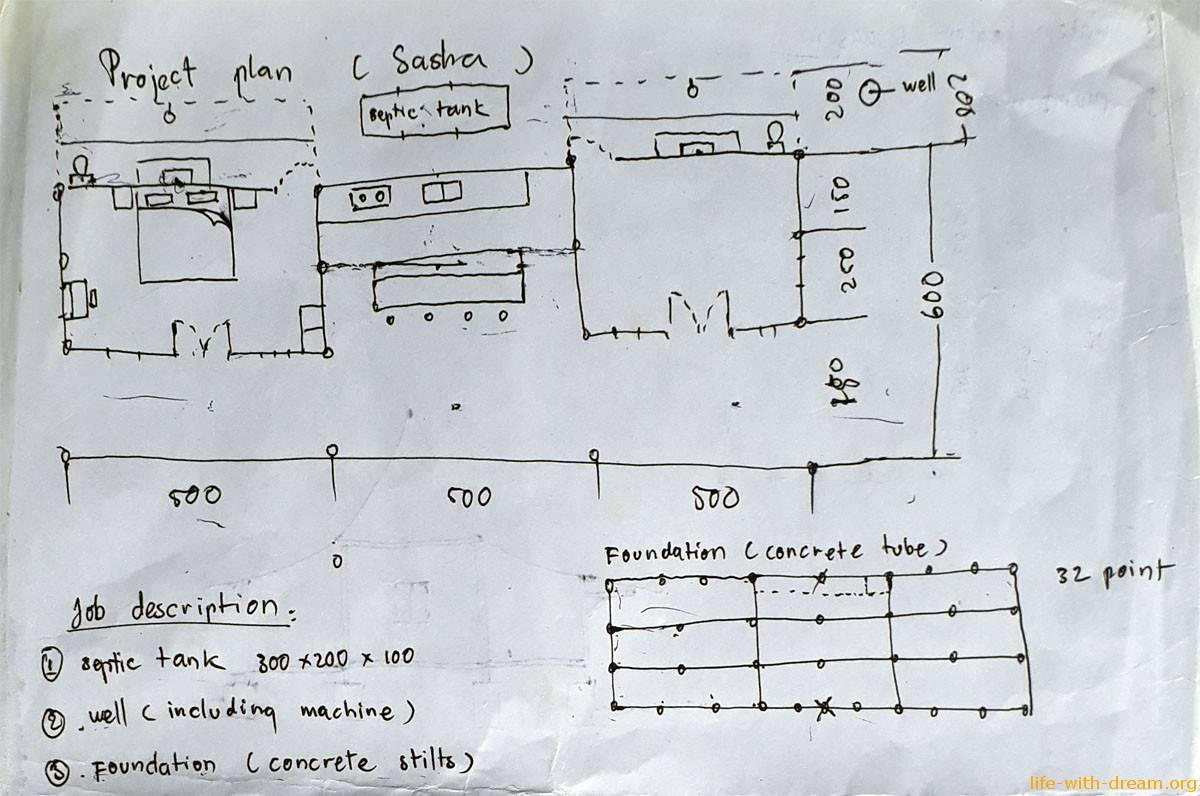 Project plan (Sasha)
septic tank
200
well
200
150
250
600
500
500
500
Foundation (concrete tube)
32 point
Job description:
① septic tank 300 x 200 x 100
② well (including machine)
③ Foundation (concrete stilts)
life-with-dream.org